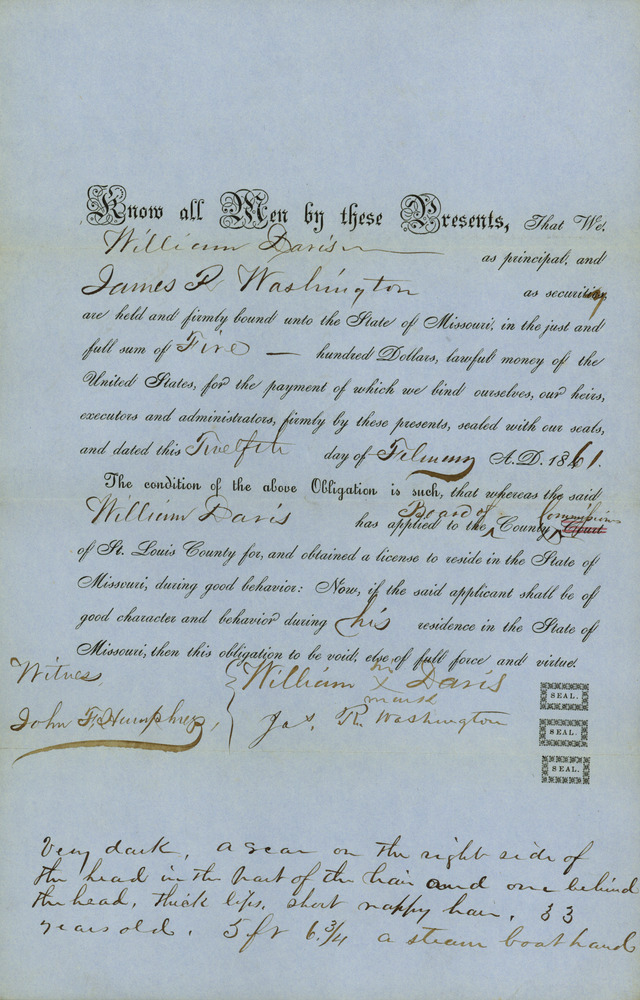 Know all Men by these Presents, That We,
William Davis
as principal, and
James R Washington
as security
are held and firmly bound unto the State of Missouri, in the just and
full sum of Five — hundred Dollars, lawful money of the
United States, for the payment of which we bind ourselves, our heirs,
executors and administrators, firmly by these presents, sealed with our seals,
and dated this Twelfth day of February A. D. 1861.
The condition of the above Obligation is such, that whereas the said
William Davis has applied to the Board of County Commissioners Court
of St. Louis County for, and obtained a license to reside in the State of
Missouri, during good behavior: Now, if the said applicant shall be of
good character and behavior during his residence in the State of
Missouri, then this obligation to be void, else of full force and virtue.
Witness
William his X mark Davis
SEAL.
John F. Humphrey,
Jas. R. Washington
SEAL.
SEAL.
Very dark, a scar on the right side of
the head in the part of the hair and one behind
the head, thick lips, short nappy hair, 33
years old. 5 ft 6 3/4 a steam boat hand